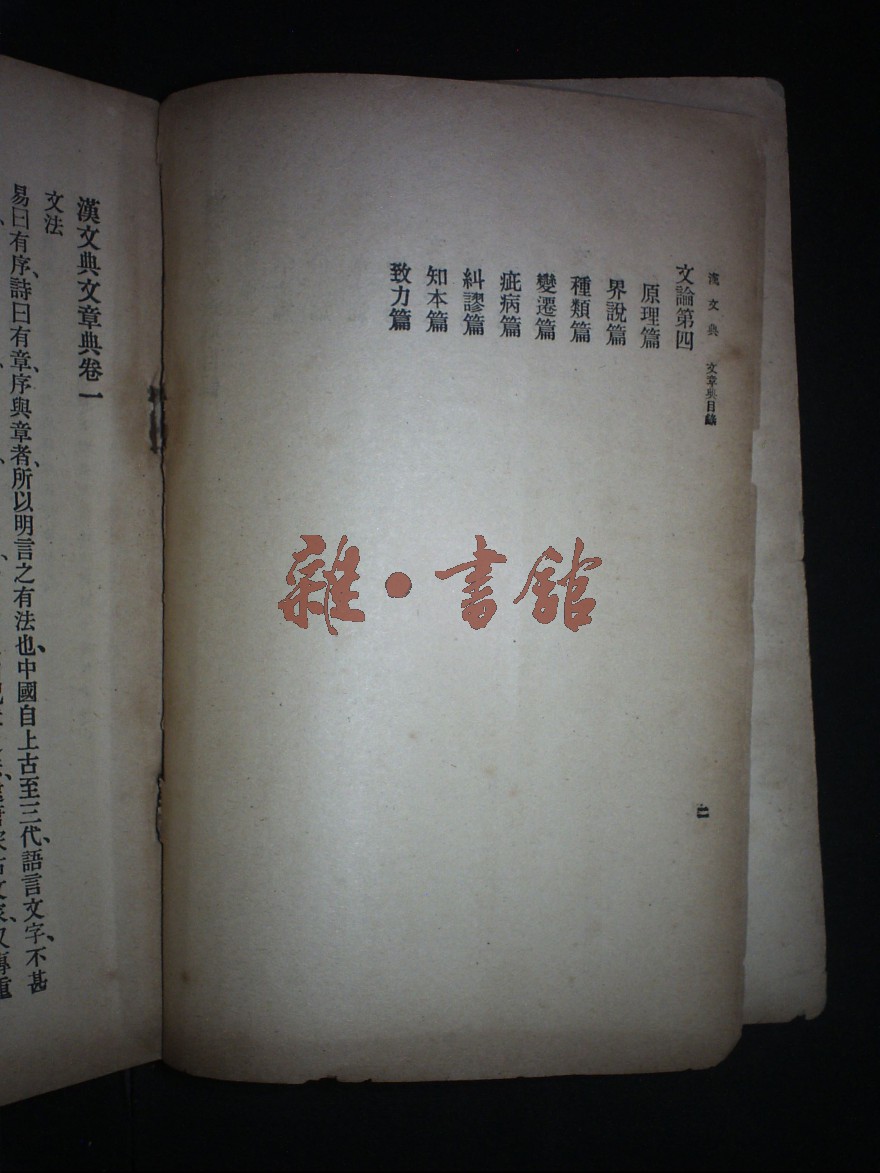 漢文典 文章典目錄
文論第四
原理篇
界說篇
種類篇
變遷篇
疵病篇
糾謬篇
知本篇
致力篇
二
雜•書館
漢文典文章典卷一
文法
易曰有序、詩曰有章、序與章者、所以明言之有法也、中國自上古至三代、語言文字、不甚